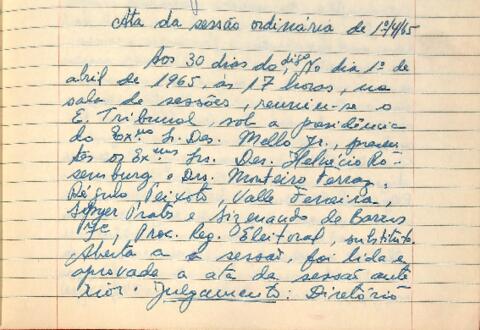 Ata da sessão ordinária de 1º/4/65
Aos 30 dias do, digo, No dia 1º de
abril de 1965, às 17 horas, na
sala de sessões, reuniu-se o
E. Tribunal, sob a presidência
do Exmo Sr. Des. Mello Jr., presen
tes os Exmos Srs. Des. Helvécio Ro-
semburg e Drs. Monteiro Ferraz,
Régulo Peixoto, Valle Ferreira,
Prats e Sizenando de Barros
Proc. Reg. Eleitoral, substituto.
Aberta a sessão, foi lida e
aprovada a ata da sessão ante
rior. Julgamento: Diretório